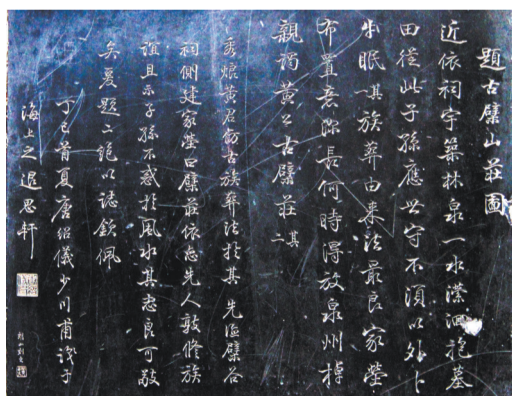 題古檗山莊圖
近依祠宇築林泉一水瀠洄抱墓
田從此子孫應世守不須以外卜
牛眠其一族葬由來法最良家塋
布置意深長何時得放泉州棹
親謁黃公古檗莊其二
秀烺黃君仿古族葬法於其先檗谷
祠側建家塋曰檗莊依先人敦修族
誼且示子孫不惑於風水其志良可敬
矣爰題二絕以誌欽佩
丁巳首夏唐紹儀少川甫識于
海上之退思軒